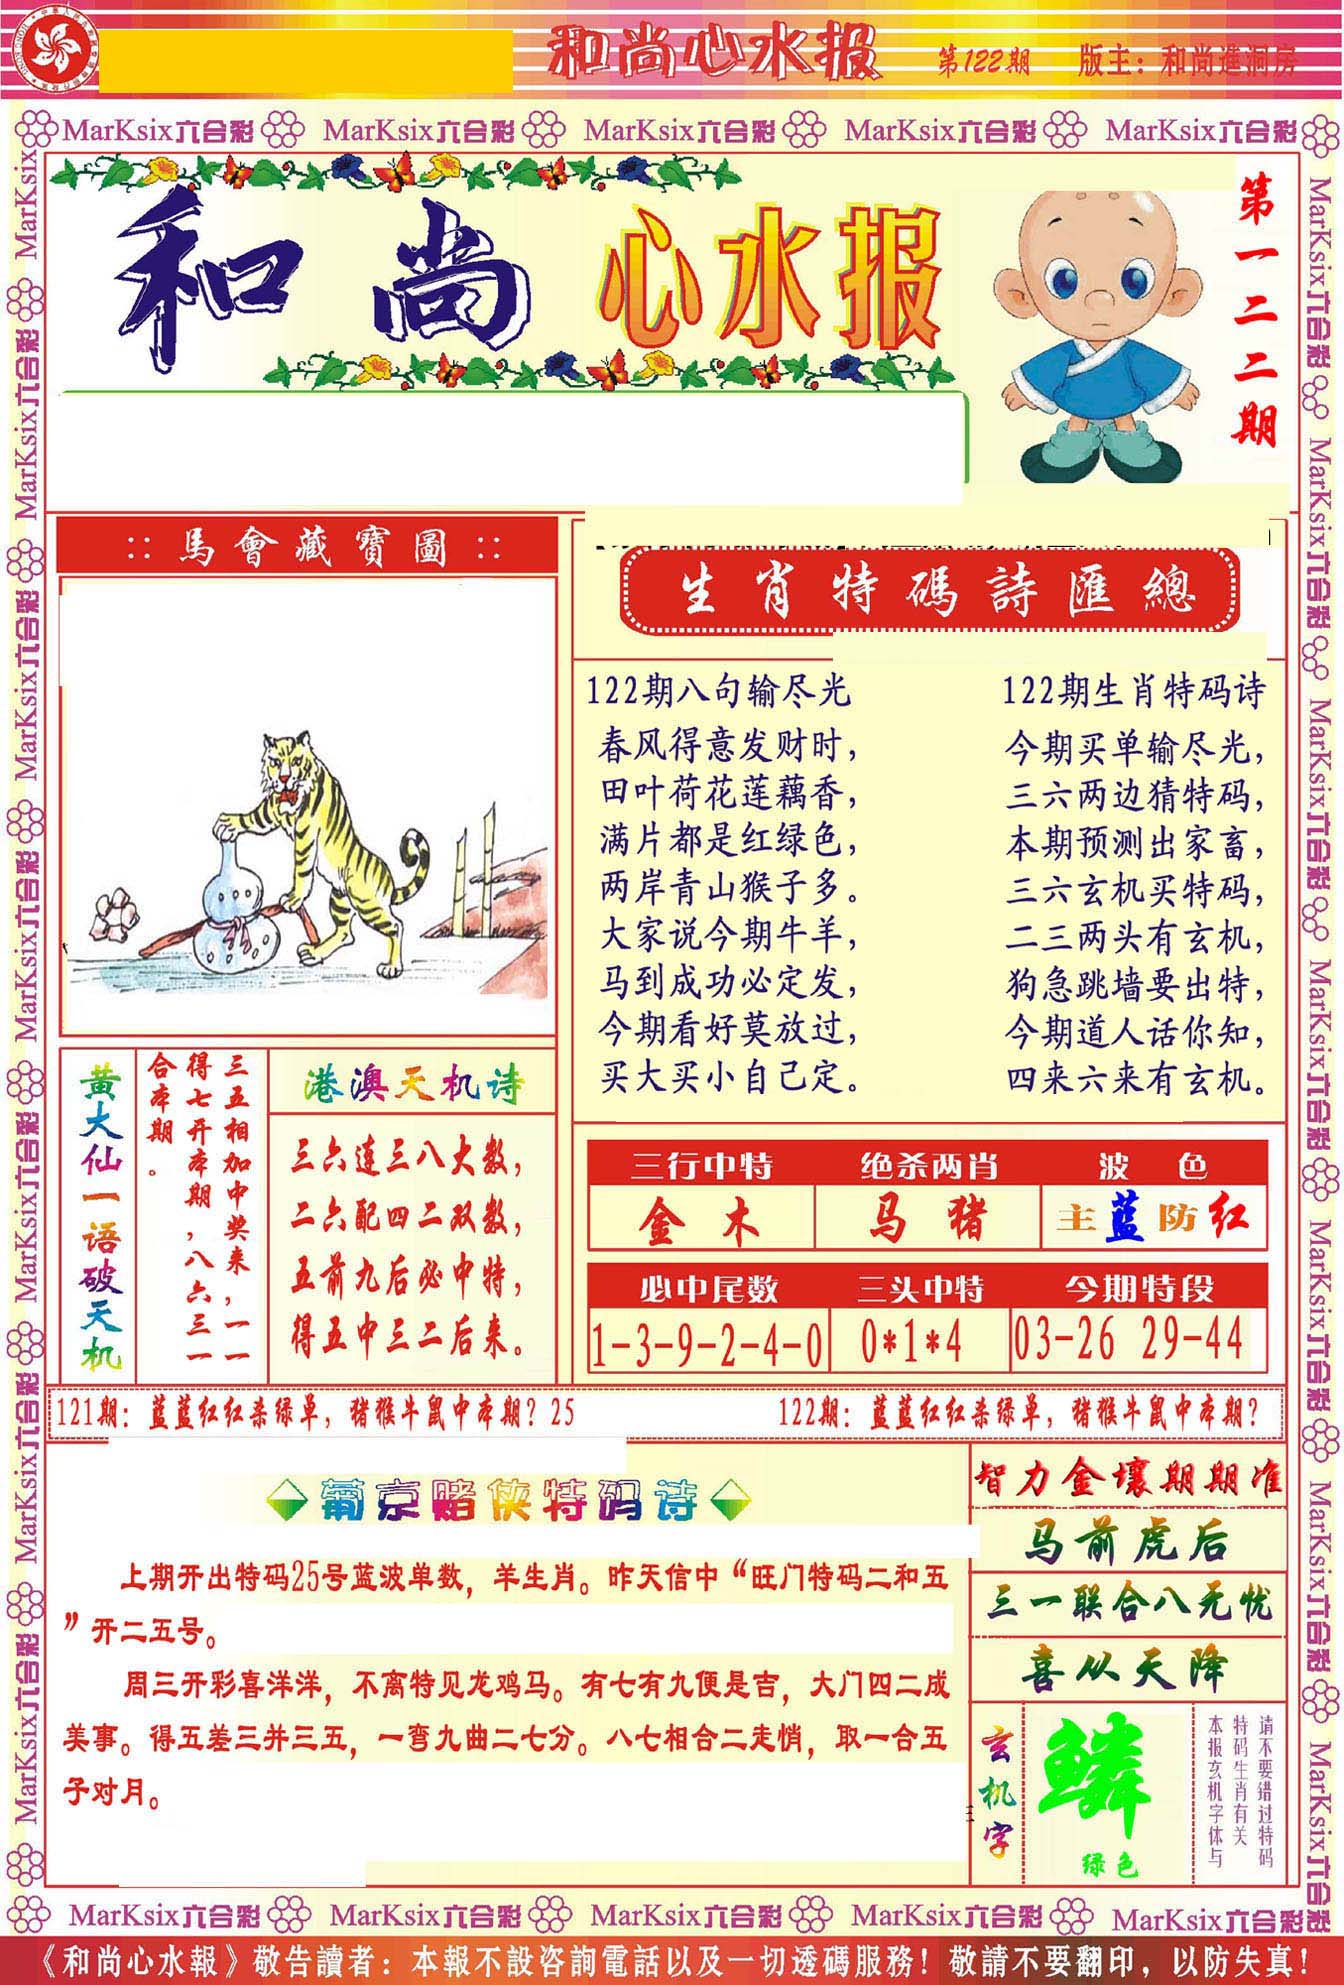 和尚心水报 第122期 版主：和尚進洞房
MarKsix六合彩 MarKsix六合彩 MarKsix六合彩 MarKsix六合彩 MarKsix六合彩
和尚心水报
第一二二期
::馬會藏寶圖::
生肖特碼詩匯總
122期八句输尽光
春风得意发财时，
田叶荷花莲藕香，
满片都是红绿色，
两岸青山猴子多。
大家说今期牛羊，
马到成功必定发，
今期看好莫放过，
买大买小自己定。
122期生肖特码诗
今期买单输尽光，
三六两边猜特码，
本期预测出家畜，
三六玄机买特码，
二三两头有玄机，
狗急跳墙要出特，
今期道人话你知，
四来六来有玄机。
黄大仙一语破天机
三五相加中奖来，一一
得七开本期，八六三一
合本期。
港澳天机诗
三六连三八大数，
二六配四二双数，
五前九后必中特，
得五中三二后来。
三行中特 绝杀两肖 波色
金木 马猪 主蓝防红
必中尾数 三头中特 今期特段
1-3-9-2-4-0 0*1*4 03-26 29-44
121期：蓝蓝红红杀绿单，猪猴牛鼠中本期？25 122期：蓝蓝红红杀绿单，猪猴牛鼠中本期？
葡京赌侠特码诗
上期开出特码25号蓝波单数，羊生肖。昨天信中“旺门特码二和五
”开二五号。
周三开彩喜洋洋，不离特见龙鸡马。有七有九便是吉，大门四二成
美事。得五差三并三五，一弯九曲二七分。八七相合二走悄，取一合五
子对月。
智力金壤期期准
马前虎后
三一联合八无忧
喜从天降
玄机字
鳞
绿色
请不要错过特码
特码生肖有关
本报玄机字体与
MarKsix六合彩 MarKsix六合彩 MarKsix六合彩 MarKsix六合彩 MarKsix六合彩
《和尚心水報》敬告讀者：本報不設咨詢電話以及一切透碼服務！敬請不要翻印，以防失真！